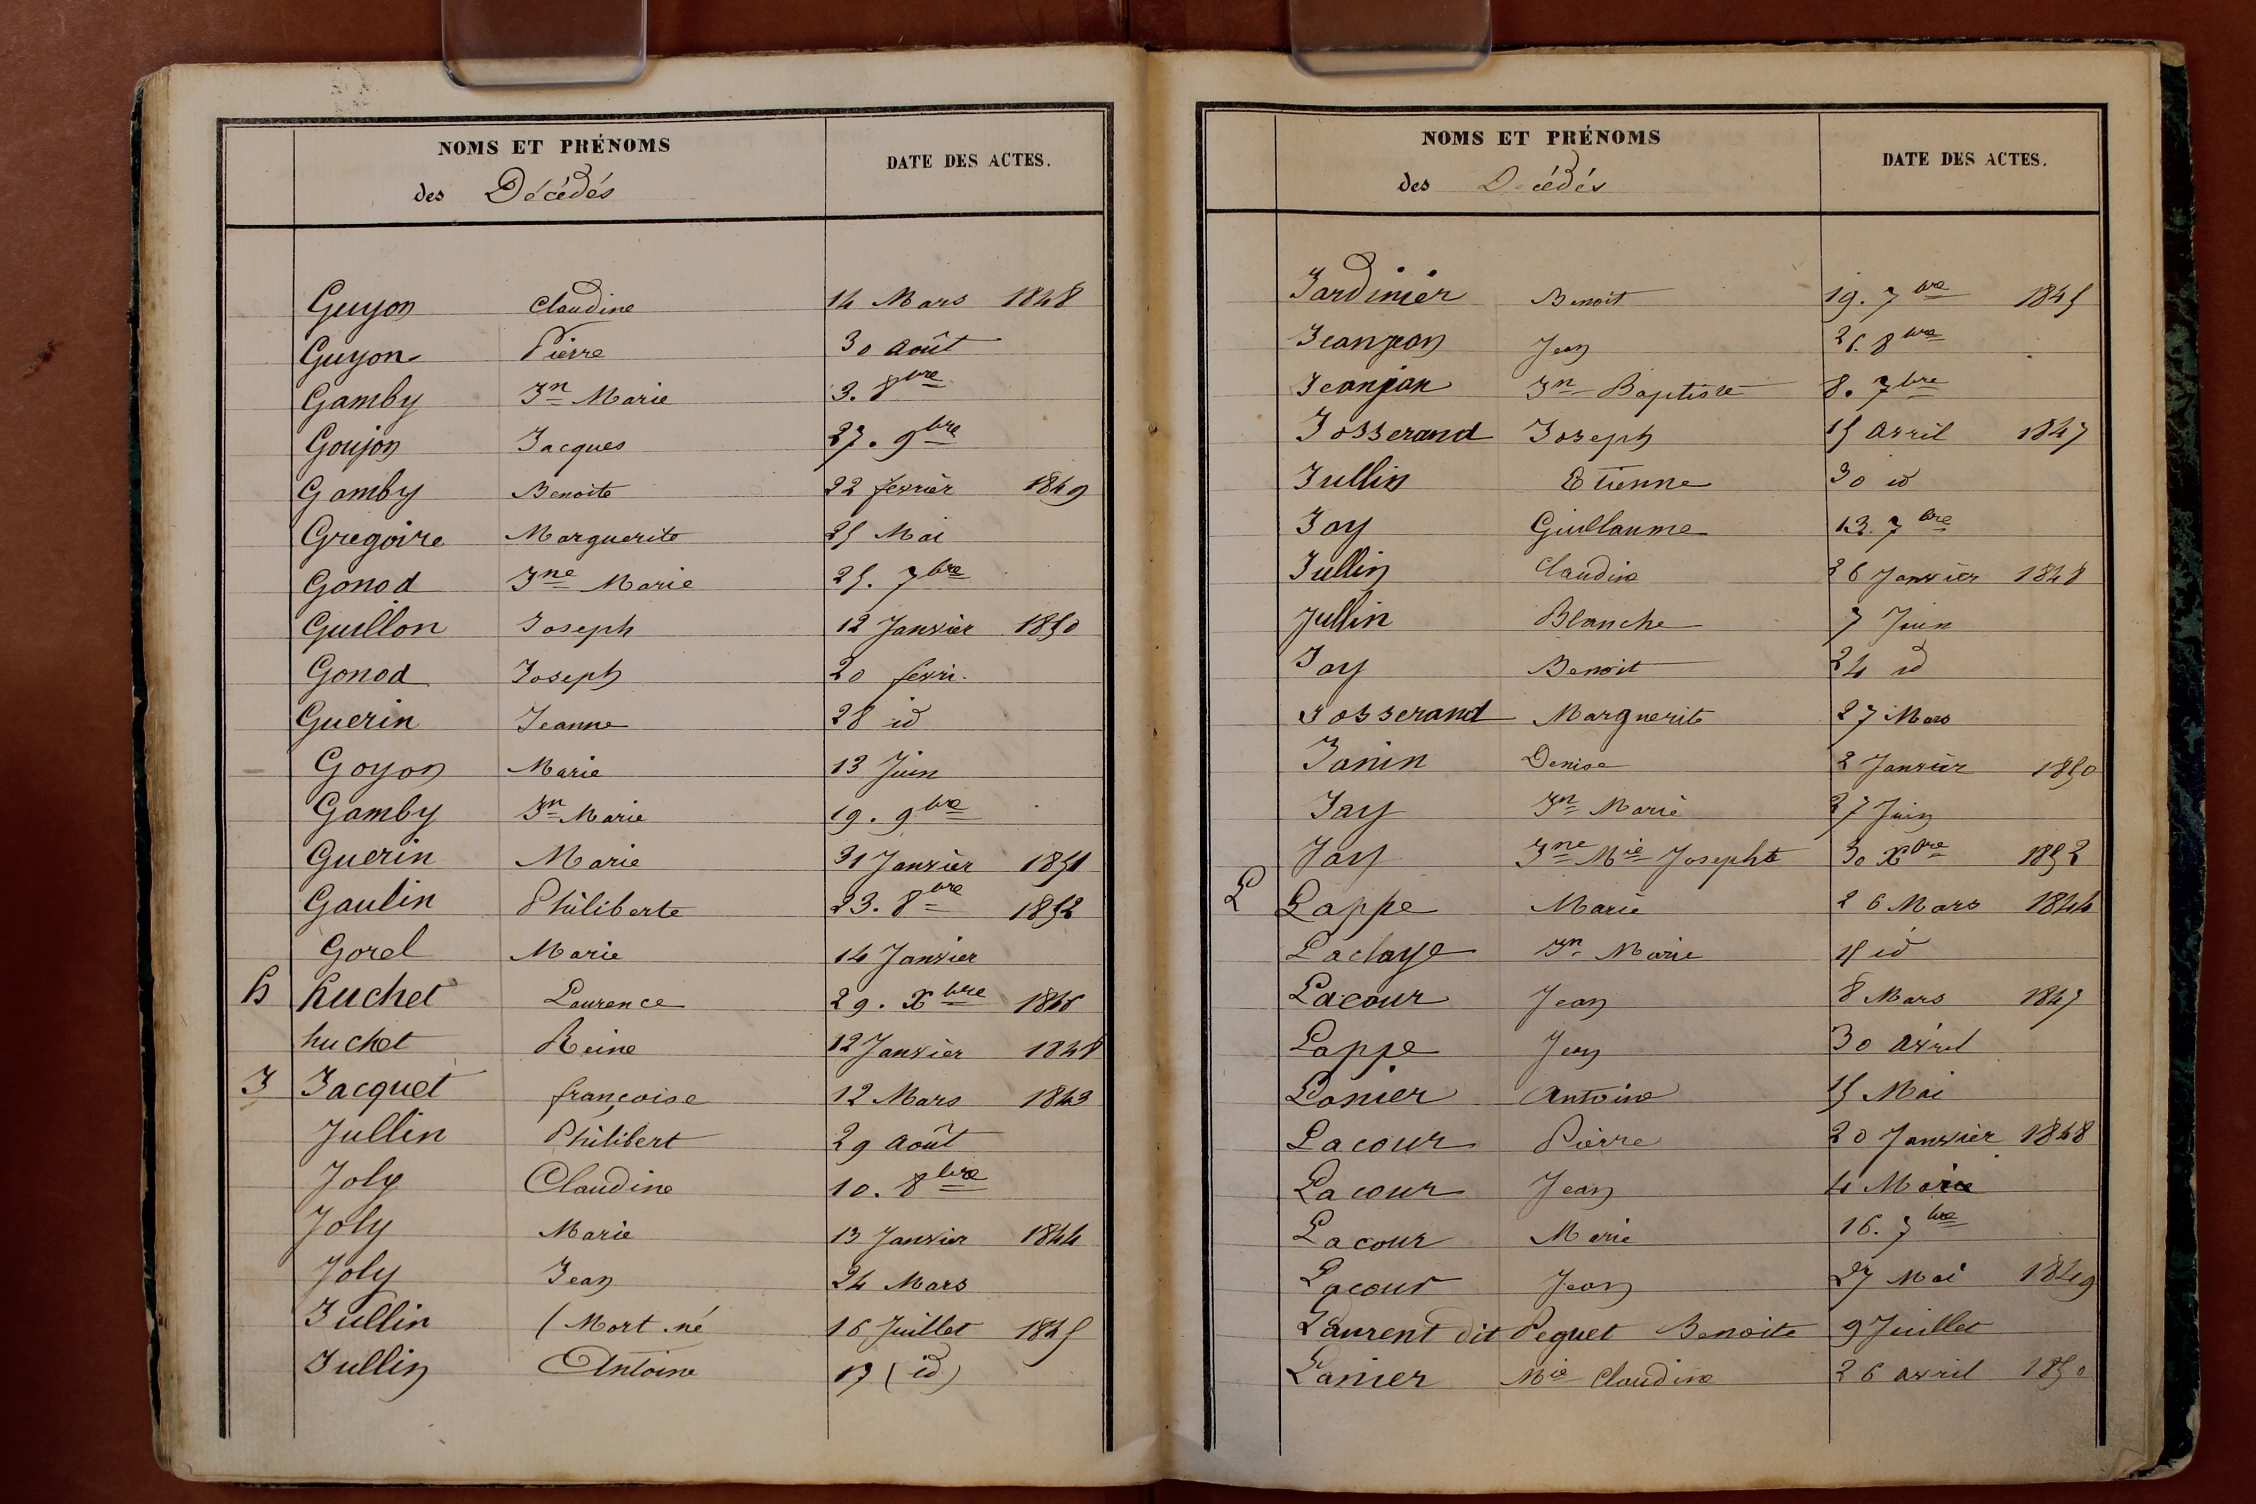 NOMS ET PRÉNOMS
des Décédés
DATE DES ACTES.
Guyon Claudine 14 Mars 1848
Guyon Pierre 30 Août
Gamby Jn Marie 3. 8bre
Goujon Jacques 27. 9bre
Gamby Benoite 22 fevrier 1849
Gregoire Marguerite 25 Mai
Gonod Jne Marie 25. 7bre
Guillon Joseph 12 Janvier 1850
Gonod Joseph 20 fevri.
Guerin Jeanne 28 id
Goyon Marie 13 Juin
Gamby Jn Marie 19. 9bre
Guerin Marie 31 Janvier 1851
Gaulin Philiberte 23. 8bre 1852
Gorel Marie 14 Janvier
h huchet Laurence 29. Xbre
huchet Reine 12 Janvier 1848
J Jacquet françoise 12 Mars 1843
Jullin Philibert 29 Août
Joly Claudine 10. 8bre
Joly Marie 13 Janvier 1844
Joly Jean 24 Mars
Jullin (Mort né 16 Juillet 1845
Jullin Antoine 17 (id)
NOMS ET PRÉNOMS
des Décédés
DATE DES ACTES.
Jardinier Benoit 19. 7bre 1845
Jeanjean Jean 26. 8bre
Jeanjan Jn Baptiste 8. 7bre
Josserand Joseph 15 Avril 1847
Jullin Etienne 30 id
Jay Guillaume 13. 7bre
Jullin Claudine 26 Janvier 1848
Jullin Blanche 7 Juin
Jay Benoit 24 id
Josserand Marguerite 27 Mars
Janin Denise 2 Janvier 1850
Jay Jn Marie 27 Juin
Jay Jne Mie Josephte 30 Xbre 1852
L Lappe Marie 26 Mars 1844
Laclaye Jn Marie id
Lacour Jean 8 Mars
Lappe Jean 30 Avril
Lanier Antoine 15 Mai
Lacour Pierre 20 Janvier 1848
Lacour Jean 4
Lacour Marie 16. 7bre
Lacour Jean 27 Mai 1849
Laurent dit Peguet Benoite 9 Juillet
Lanier Mie Claudine 26 Avril 1850